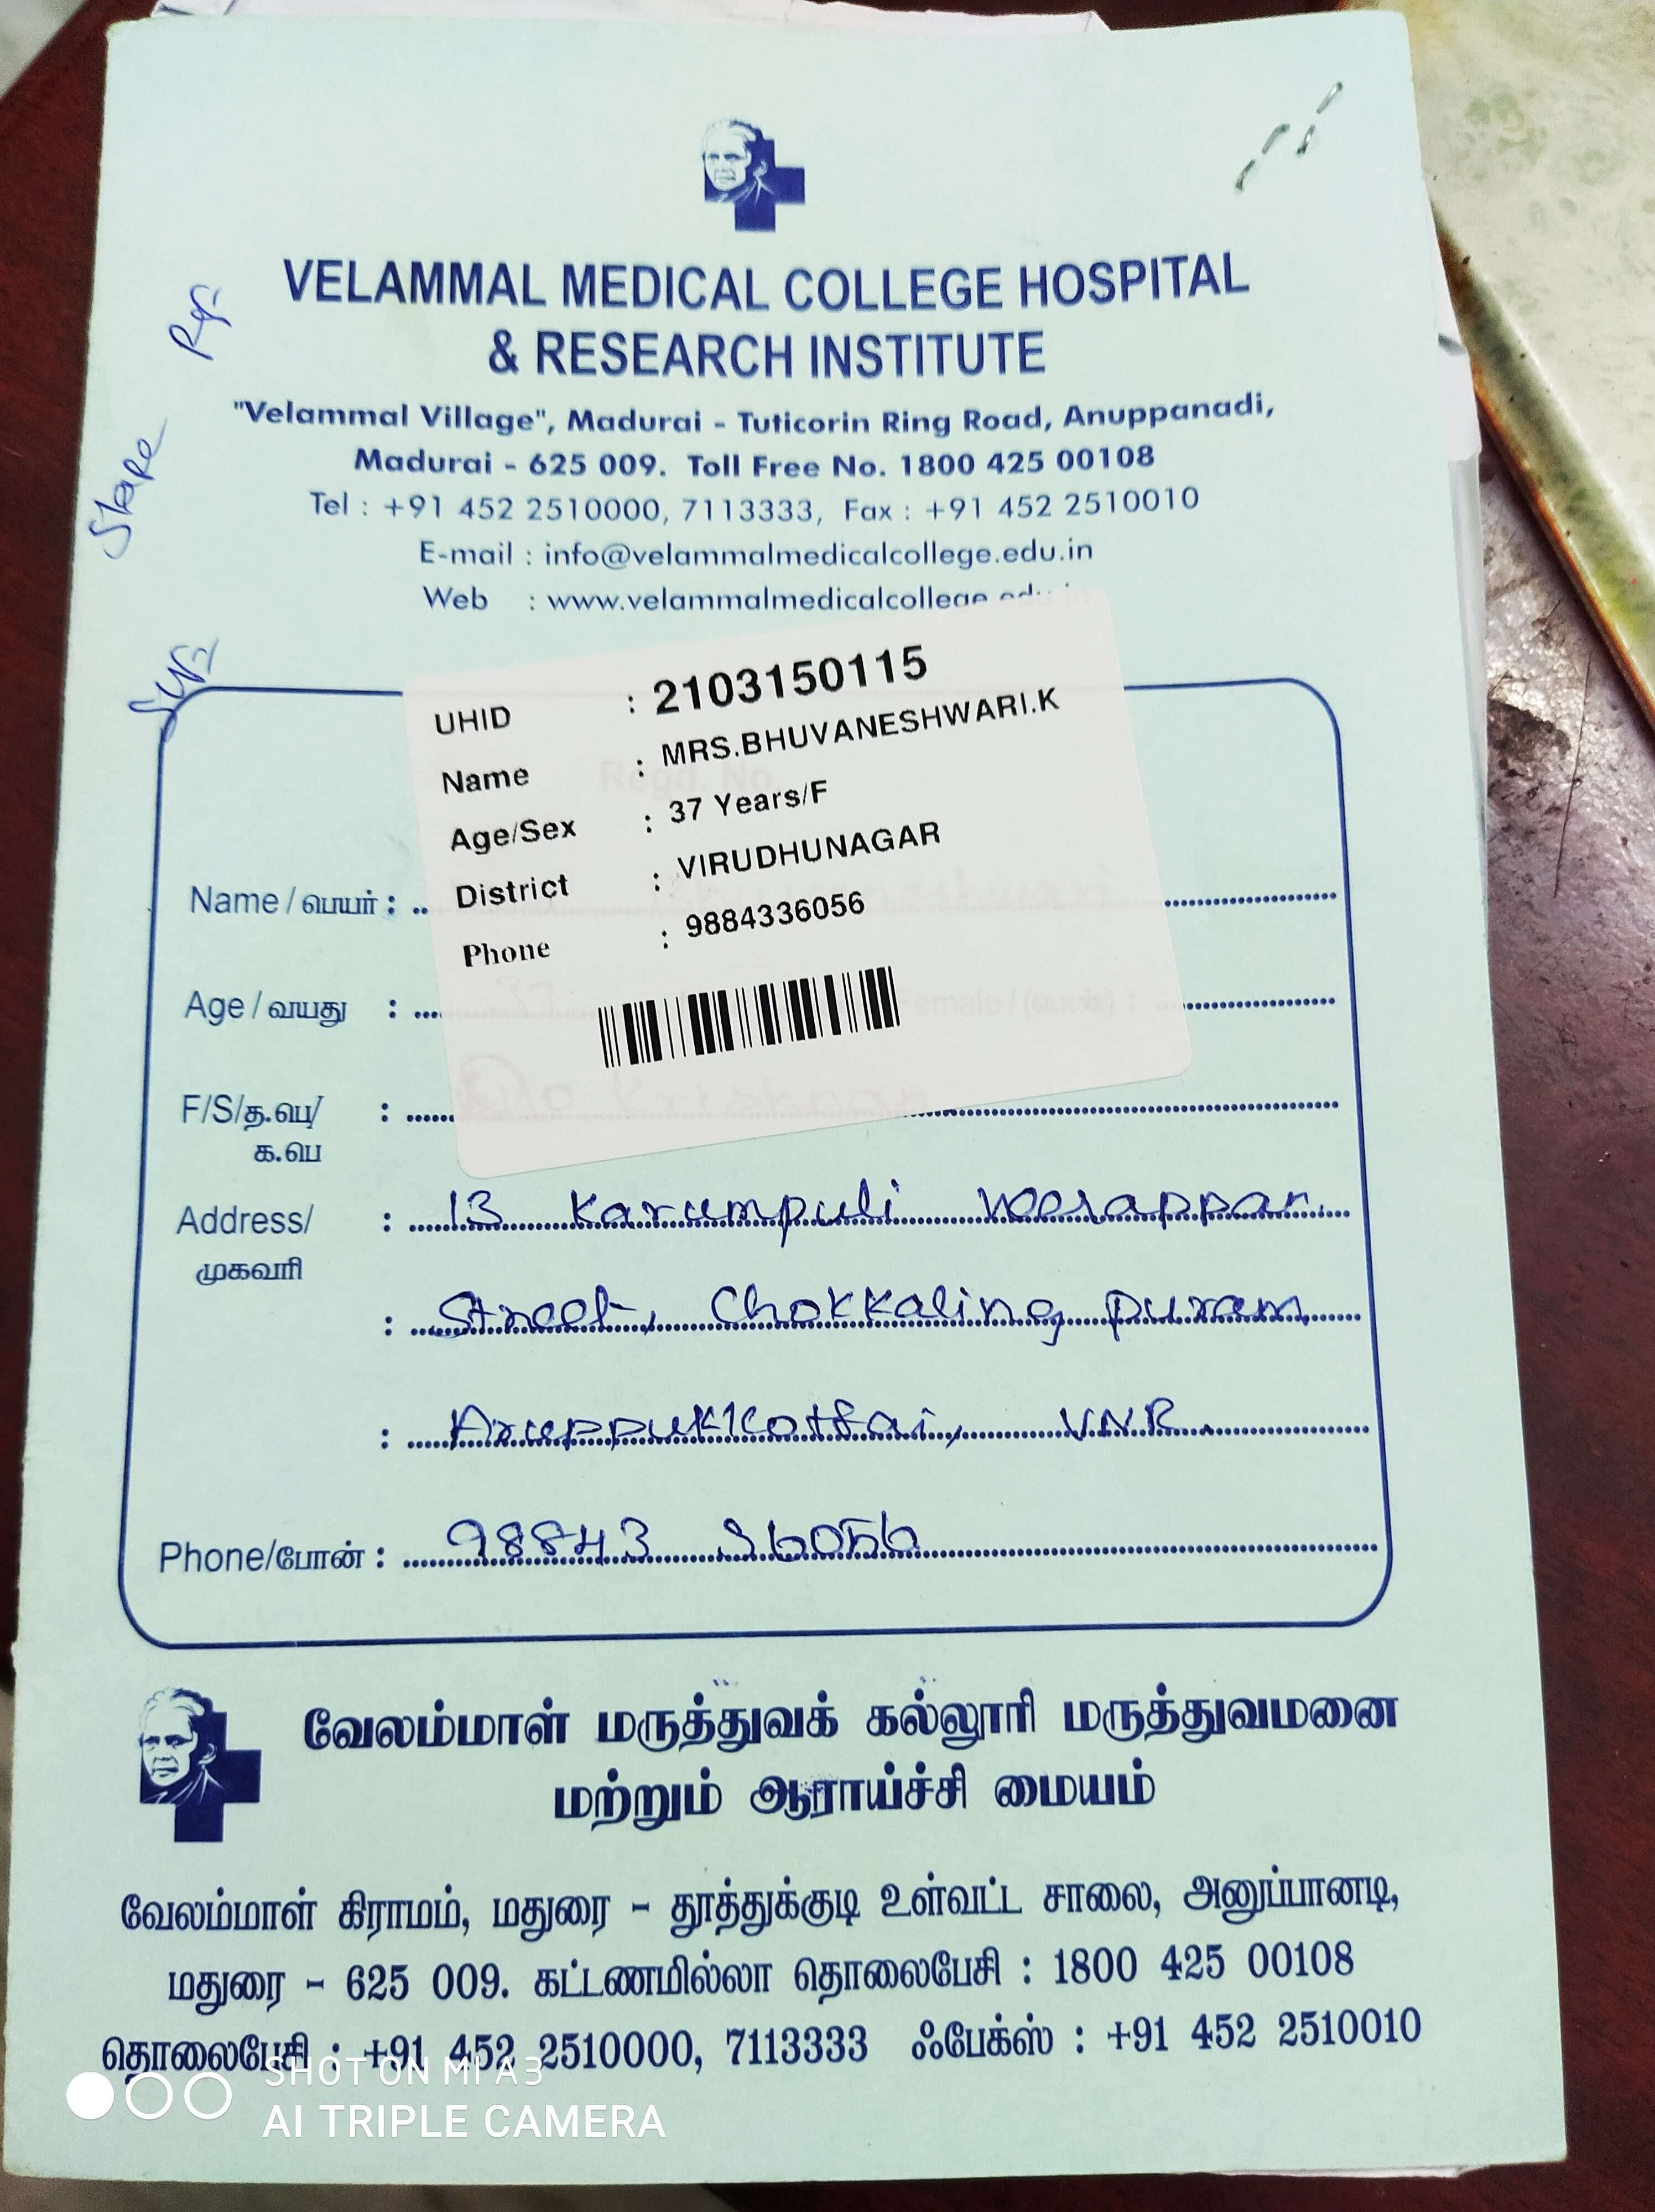 VELAMMAL MEDICAL COLLEGE HOSPITAL
& RESEARCH INSTITUTE
"Velammal Village", Madurai - Tuticorin Ring Road, Anuppanadi,
Madurai - 625 009. Toll Free No. 1800 425 00108
Tel : +91 452 2510000, 7113333, Fax : +91 452 2510010
E-mail : info@velammalmedicalcollege.edu.in
Web : www.velammalmedicalcollege.edu.in
UHID : 2103150115
Name : MRS.BHUVANESHWARI.K
Age/Sex : 37 Years/F
District : VIRUDHUNAGAR
Phone : 9884336056
Name / பெயர் :
Age / வயது :
F/S/த.பெ/
க.பெ :
Address/ : 13 Karumpuli Veerappan
முகவரி
: Street, Chokkalingpuram
: Aruppukkottai, VNR.
Phone/போன் : 98843 36056
வேலம்மாள் மருத்துவக் கல்லூரி மருத்துவமனை
மற்றும் ஆராய்ச்சி மையம்
வேலம்மாள் கிராமம், மதுரை - தூத்துக்குடி உள்வட்ட சாலை, அனுப்பானடி,
மதுரை - 625 009. கட்டணமில்லா தொலைபேசி : 1800 425 00108
தொலைபேசி : +91 452 2510000, 7113333 ஃபேக்ஸ் : +91 452 2510010
SHOT ON MI A3
AI TRIPLE CAMERA